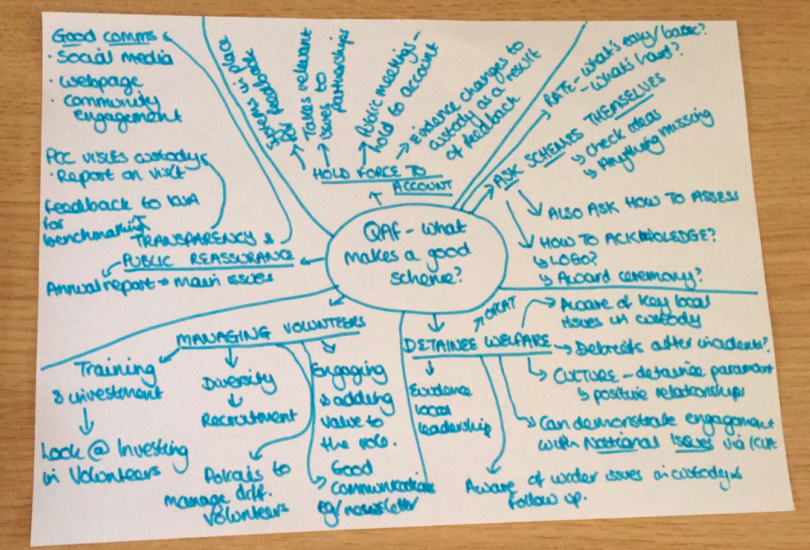 QAF - what
makes a good
scheme?
Good comms
· Social media
· webpage
· community
engagement
PCC visits custody
· Report on visit
feedback to ICVA
for
benchmarking
TRANSPARENCY &
PUBLIC REASSURANCE
Annual report → main issues
systems in place
for feedback
Takes relevant
issues to
partnerships
Public meetings -
hold to account
Evidence changes to
custody as a result
of feedback
HOLD FORCE TO
ACCOUNT
RATE - what's easy/basic?
- what's hard?
ASK SCHEMES THEMSELVES
↳ check ideas
↳ Anything missing
ALSO ASK HOW TO ASSESS
HOW TO ACKNOWLEDGE?
↳ LOGO?
↳ Award ceremony?
MANAGING VOLUNTEERS
Training
& investment
Look @ Investing
in Volunteers
Diversity
Recruitment
Policies to
manage diff.
Volunteers
Engaging
& adding
value to
the role.
Good
Communications
eg/newsletter
DETAINEE WELFARE
OPCAT
Evidence
local
leadership
Aware of key local
issues in custody
Debriefs after incidents?
CULTURE - detainee paramount
↳ positive relationships
Can demonstrate engagement
with National Issues via ICVA
Aware of wider issues in custody &
follow up.